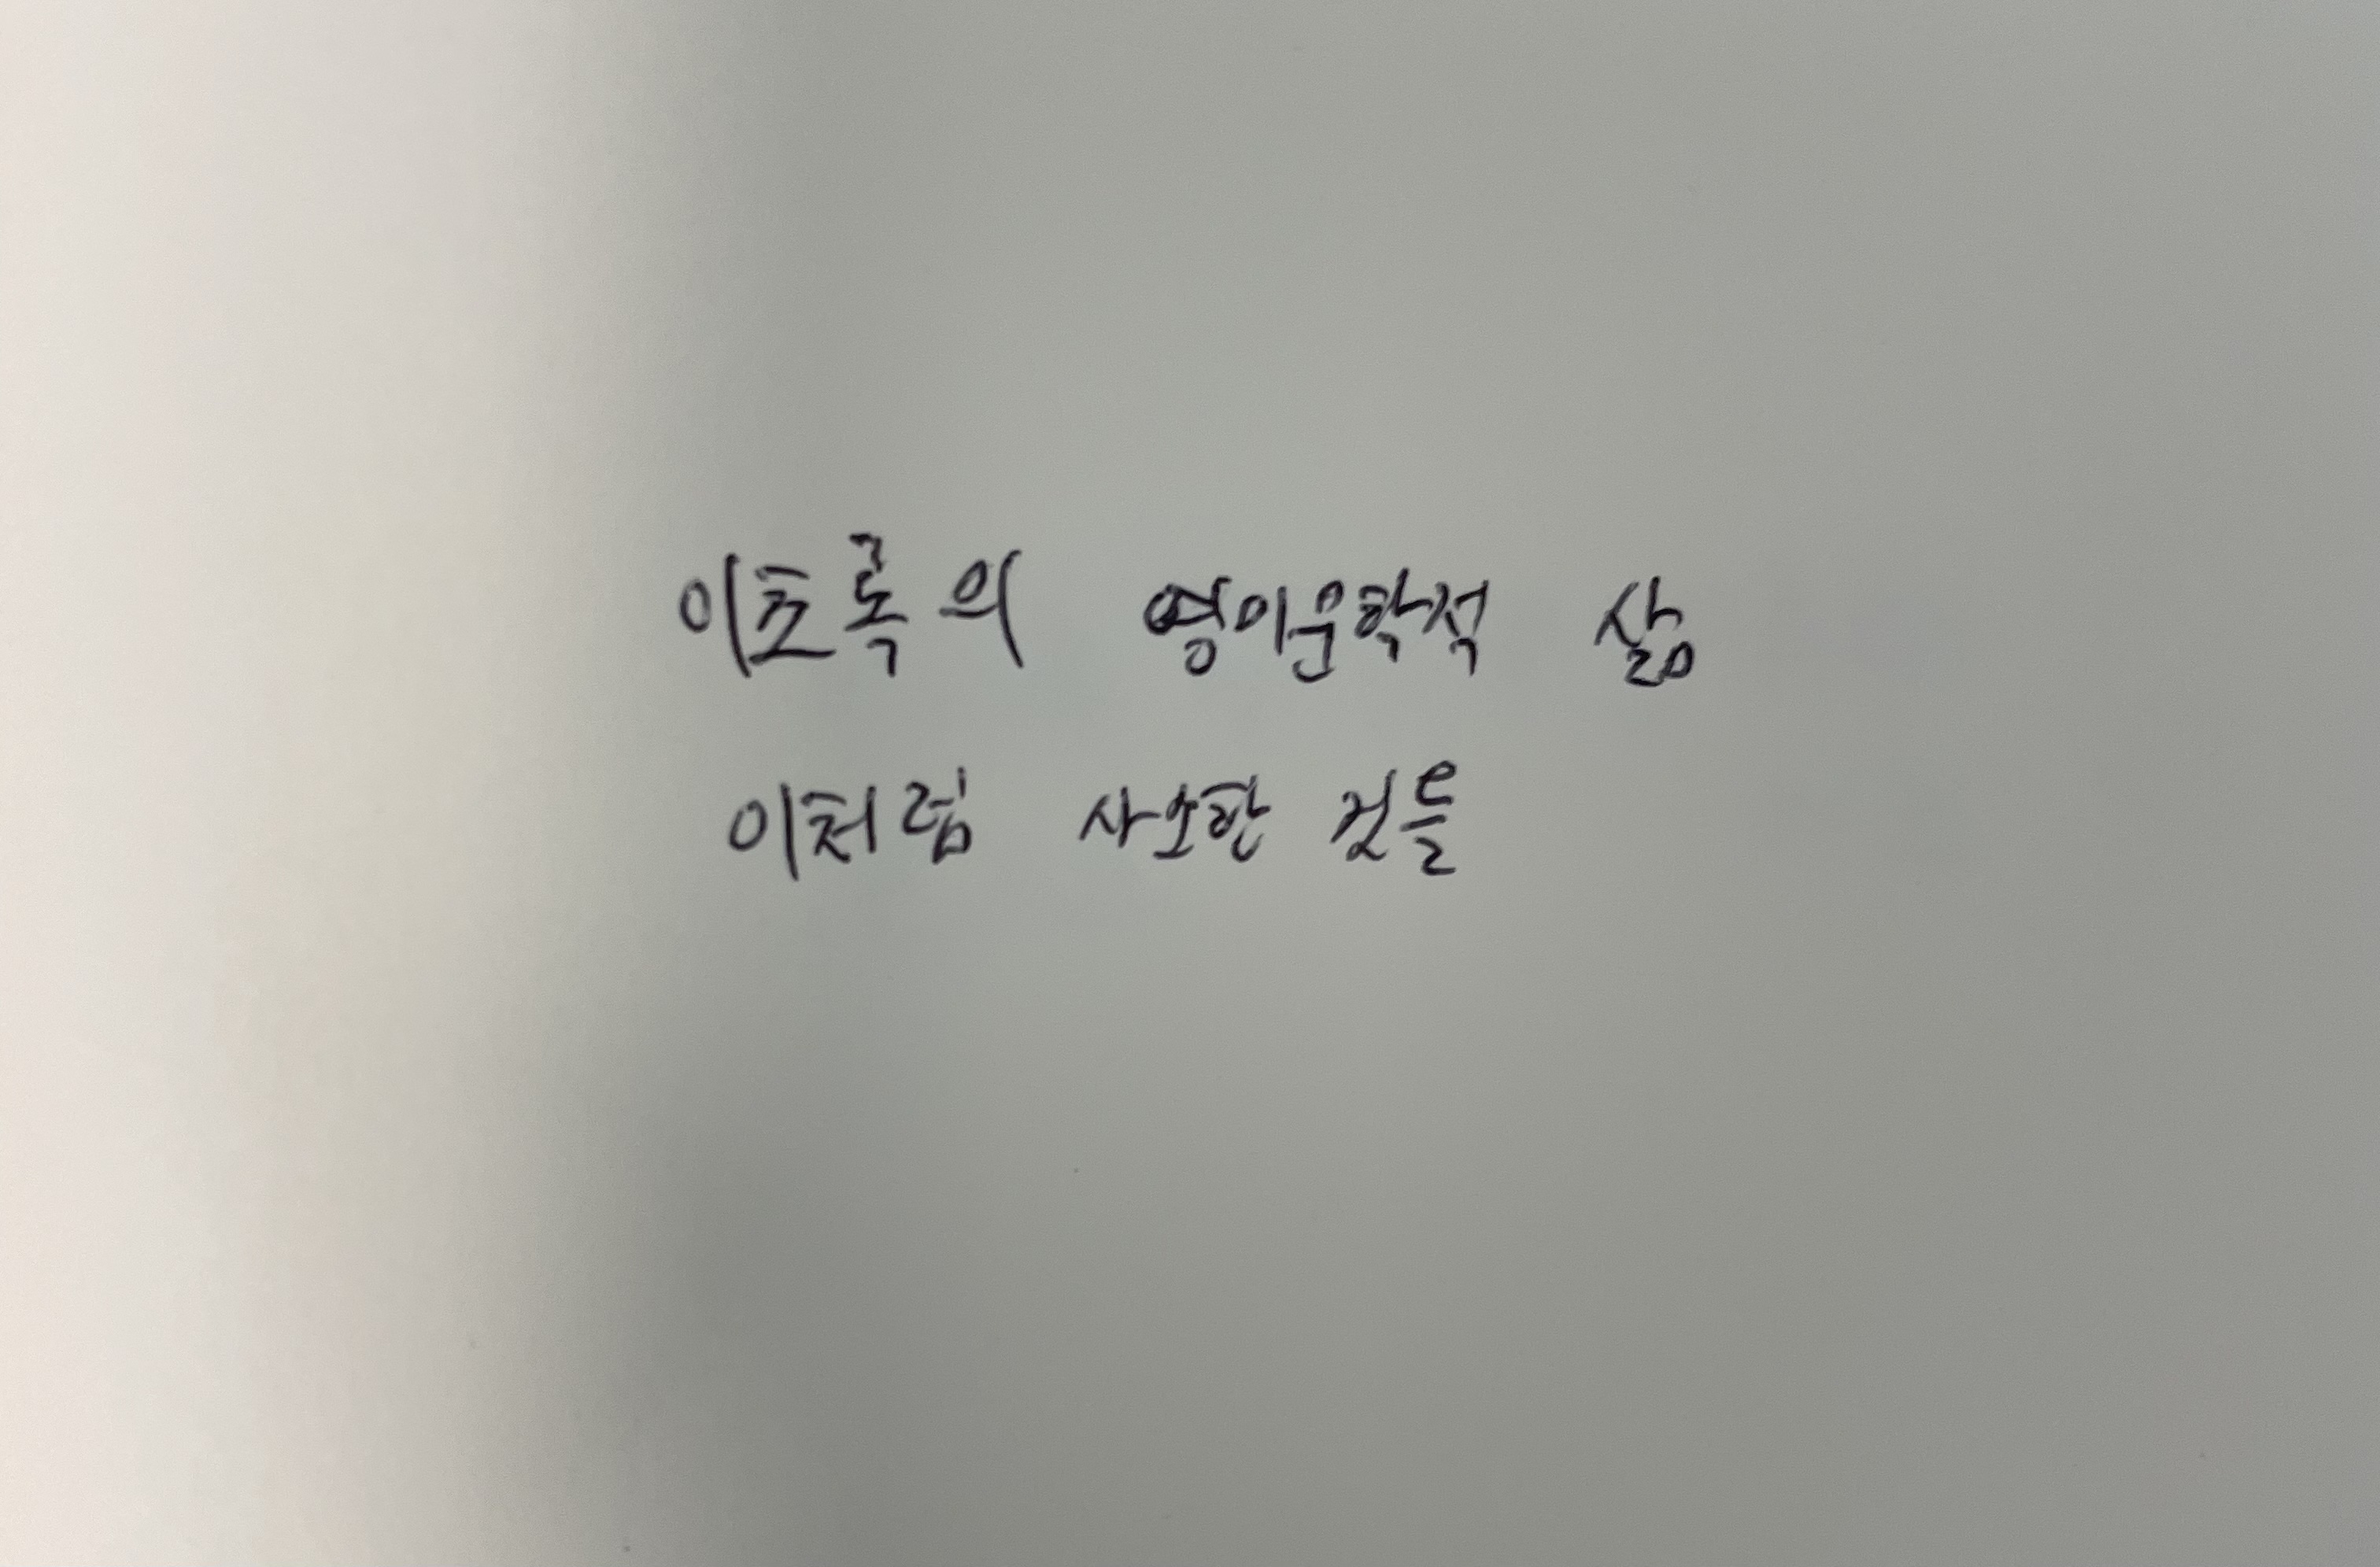 이초록의 영미문학적 삶
이처럼 사소한 것들